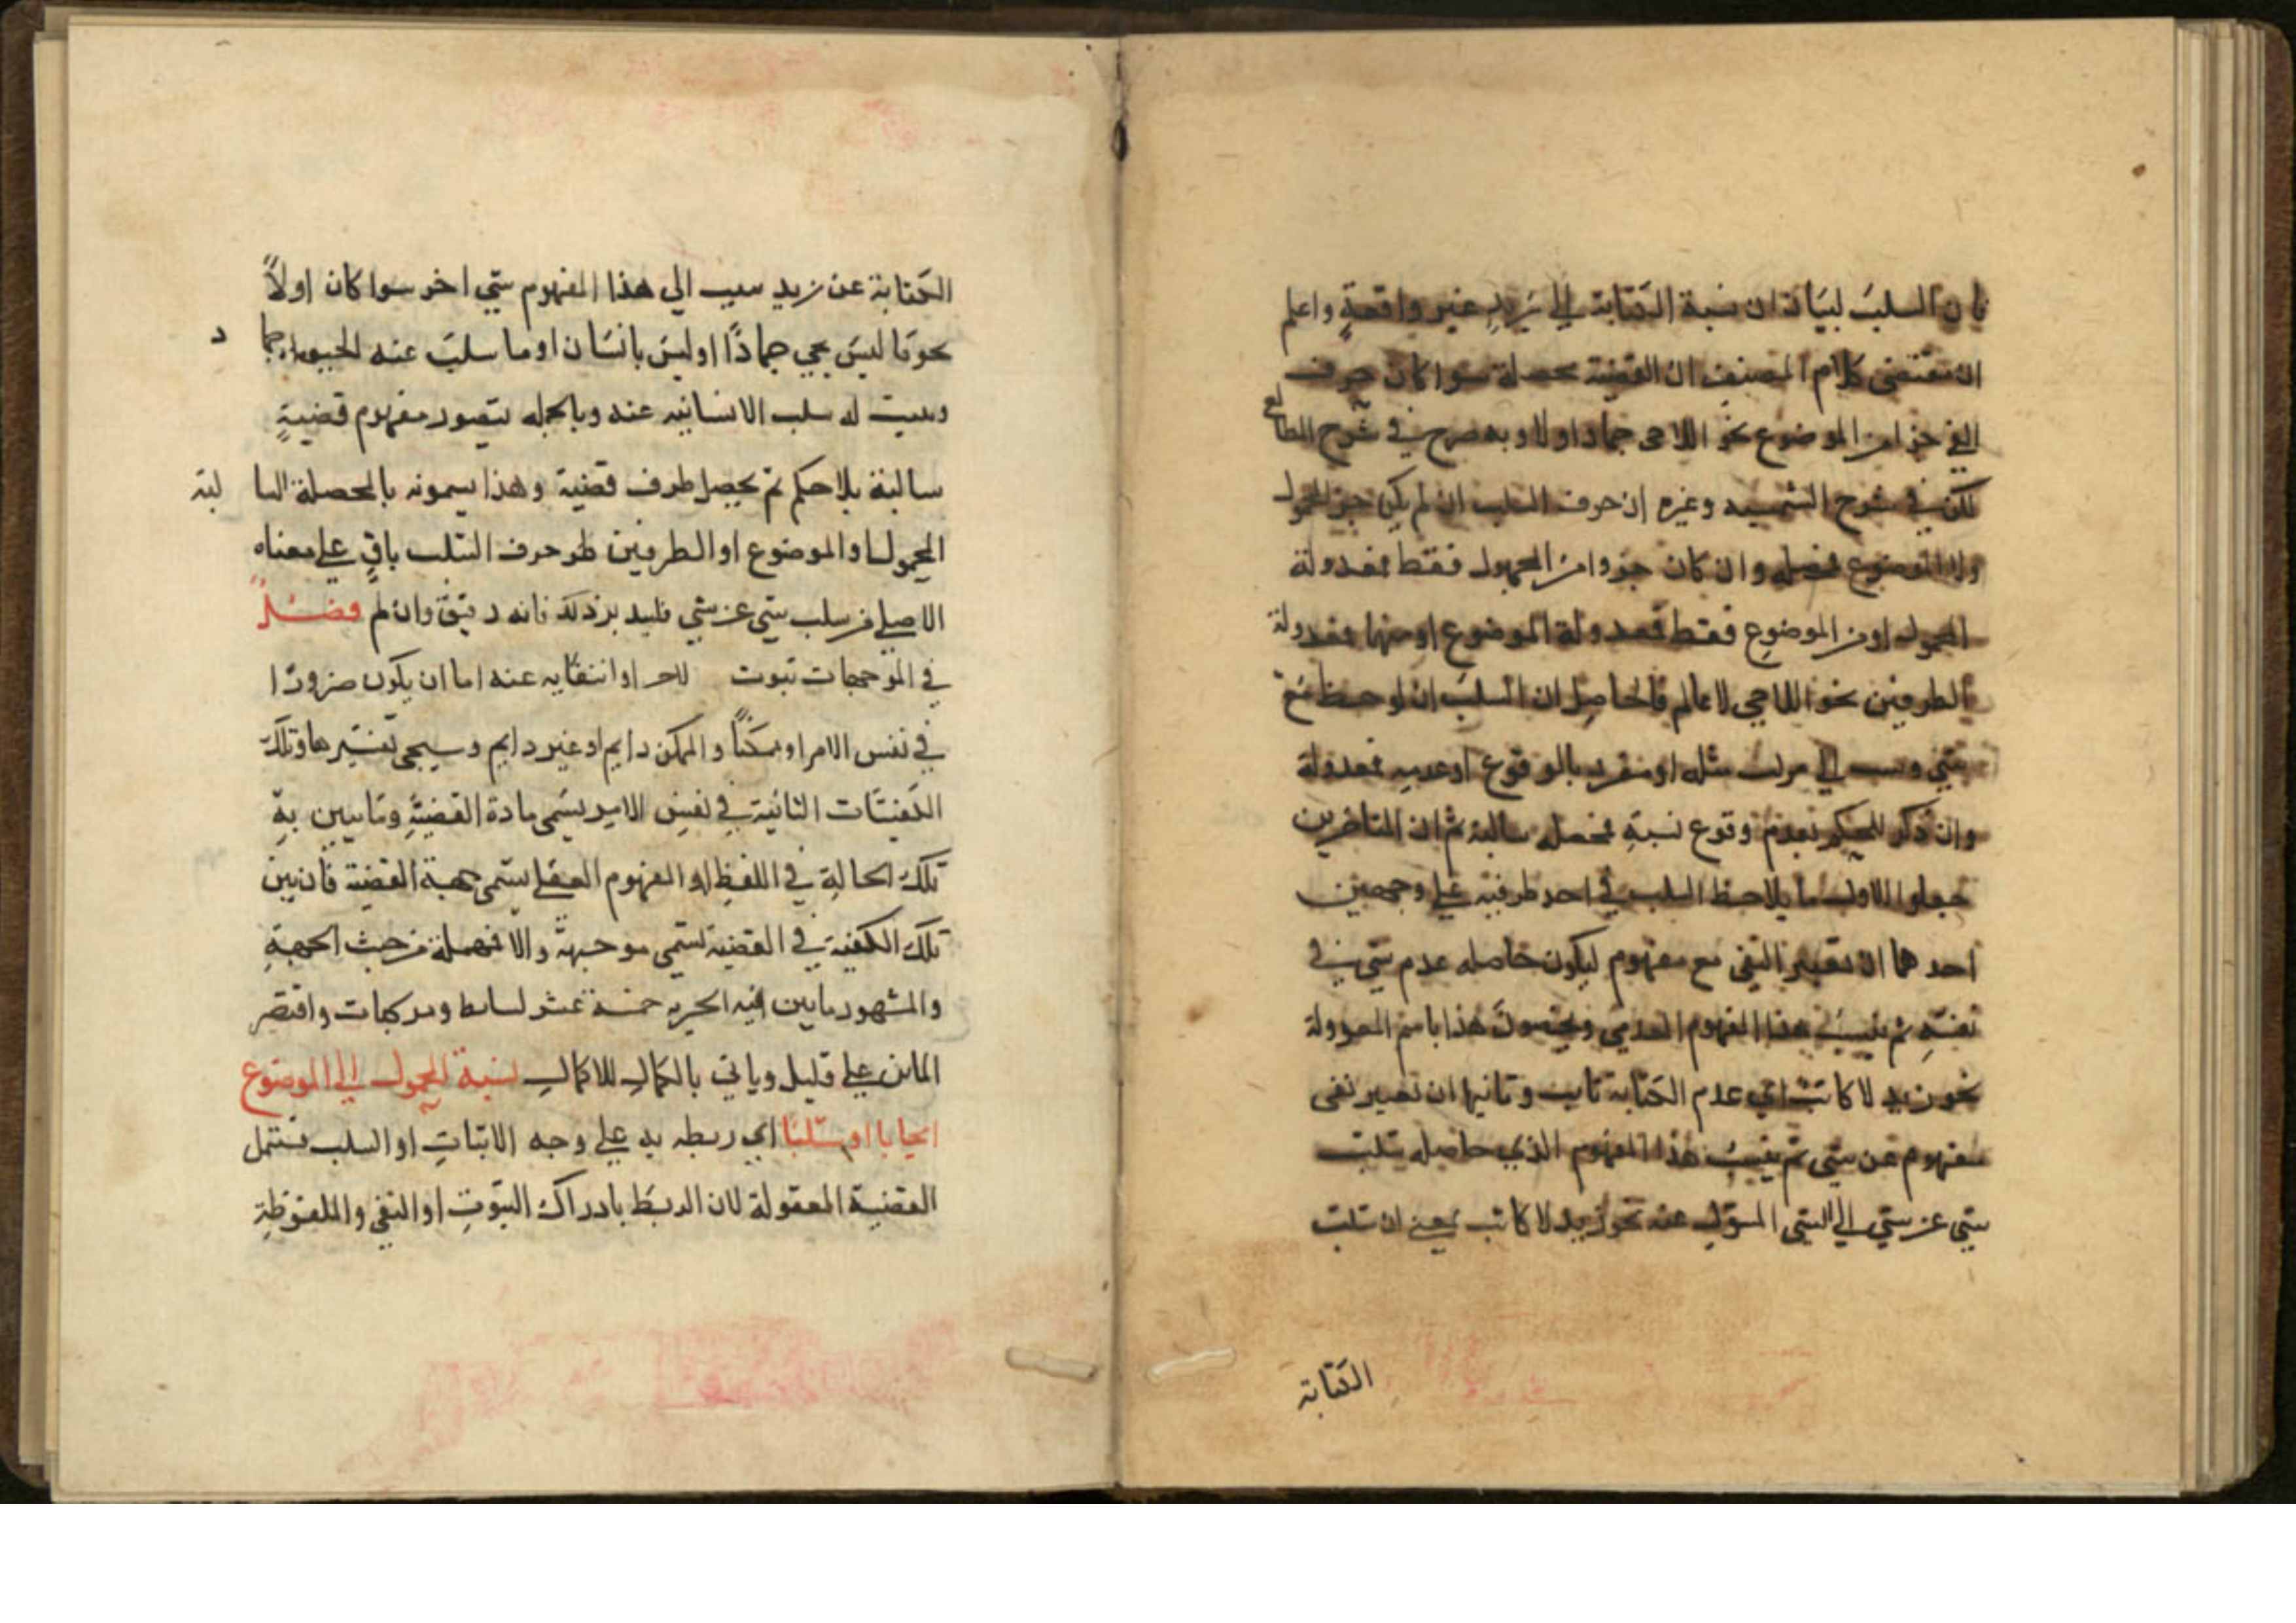 فان السلب لبيان ان نسبة الكتابة الي زيد غير واقعة واعلم
ان مقتضى كلام المصنف ان القضية محصلة سوا كان حرف
النفي جزا من الموضوع نحو اللاحى جماد اولا وبه صرح في شرح المطالع
لكن في شرح الشمسيه وغيره ان حرف السلب ان لم يكن جز المحمول
ولا الموضوع فمحصله وان كان جزوا من المحمول فقط فمعدولة
المحمول او من الموضوع فقط فمعدولة الموضوع او منهما فمعدولة
الطرفين نحو اللاحي لا عالم فالحاصل ان السلب ان لوحظ مع
شي ونسب الي مركب مثله او مفرد بالوقوع او عدمه فمعدولة
وان ذكر للحكم بعدم وقوع نسبة فمحصله سالبة ثم ان المتاخرين
جعلوا الاول ما يلاحظ السلب في احد طرفيه علي وجهين
احدهما ان يعتبر النفي مع مفهوم ليكون حاصله عدم شي في
نفسه ثم ينسب هذا المفهوم العدمي ويخصون هذا باسم المعدولة
نحو زيد لا كاتب اي عدم الكتابة ثابت وثانيها ان تعتبر نفى
مفهوم عن شي ثم ينسب هذا المفهوم الذي حاصله سلب
شي عن شي الي الشي المسلوب عنه نحو زيد لا كاتب بمعني ان سلب
الكتابة
الكتابة عن زيد الي هذا المفهوم شي اخر سوا كان اولاً
نحو ما ليس بحي جماداً او ليس بانسان او ما سلب عنه جماد
له سلب الانسانيه عنه وبالجمله يتصور مفهوم قضيةٍ
سالبة بلا حكم ثم يجعل طرف قضية وهذا يسمونه بالمحصلة السالبة
المحمول او الموضوع او الطرفين حرف السلب باقٍ علي معناه
الاصلي من سلب شي عن شي فليدبر ذلك فانه دقيق وان لم فصل
في الموجهات ثبوت او انتفايه عنه اما ان يكون ضروريا
في نفس الامر او ممكناً والممكن دايم او غير دايم وسيجي تفسيرها وتلك
الكيفيات الثانية في نفس الامر يسمى مادة القضية وما يبين به
تلك الحالة في اللفظ او المفهوم العقلي يسمى جهة القضية فان بين
تلك الكيفية في القضية تسمى موجهة والا فمهملة من حيث الجهة
والمشهور ما بين خمسة عشر بسايط ومركبات واقتصر
الماتن علي قليل وياتي بالكمال للاكمال نسبة المحمول الي الموضوع
ايجابا او سلبا اي ربطه به علي وجه الاثبات او السلب فتشمل
القضية المعقولة لان الربط بادراك الثبوت او النفي والملفوظة